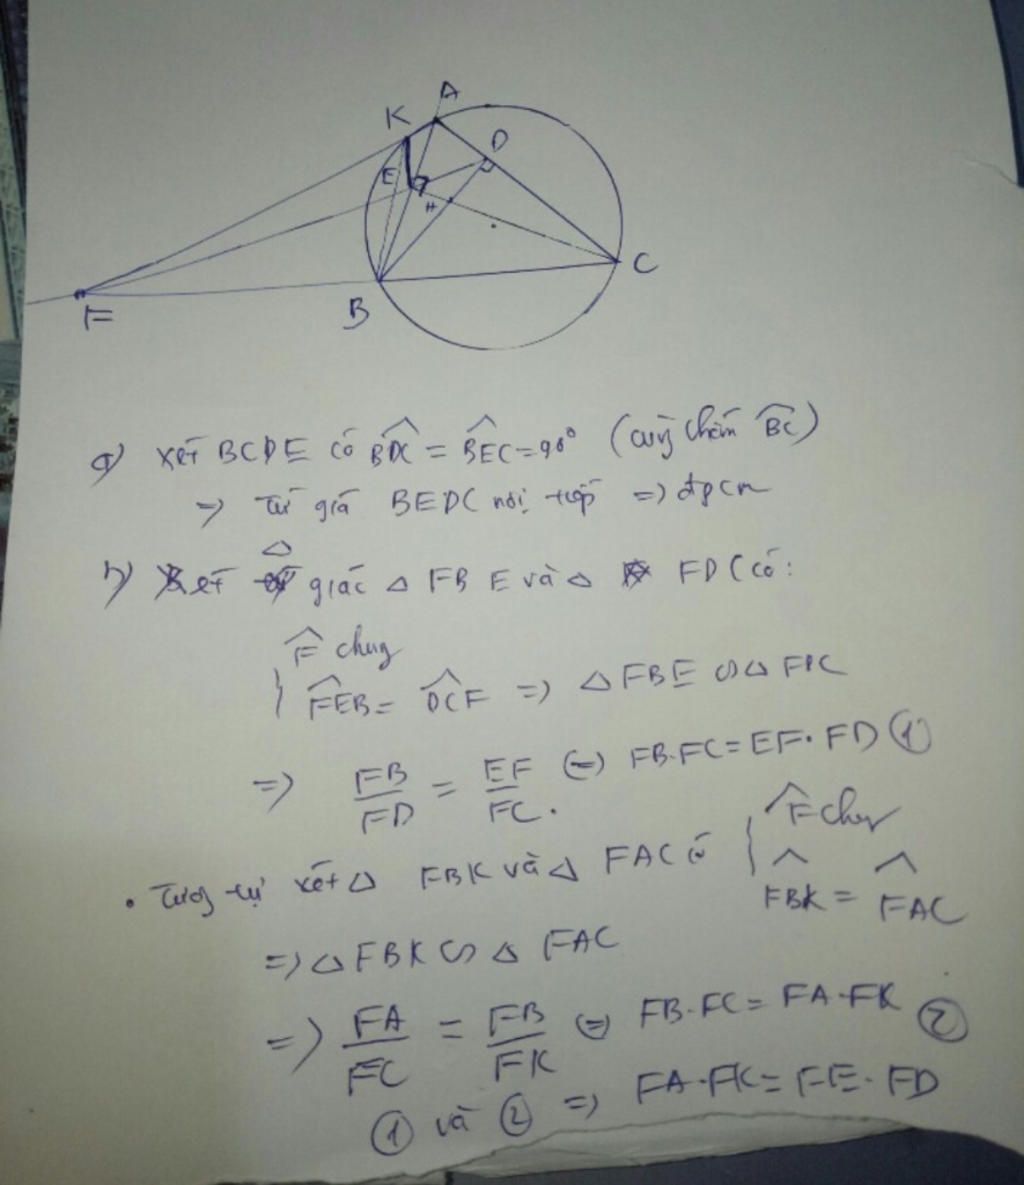 A
K
D
E
H
C
F
B
a) xét BCDE có BDC = BEC = 90° (cùng chắn BC)
=> Tứ giá BEDC nội tiếp => đpcm
b) Xét giác Δ FBE và Δ FDC có:
F chug
FEB = DCF => Δ FBE ∽ Δ FDC
=> FB/FD = EF/FC. <=> FB.FC = EF.FD ①
• Tương tự xét Δ FBK và Δ FAC có { F chug
FBK = FAC
=> Δ FBK ∽ Δ FAC
=> FA/FC = FB/FK <=> FB.FC = FA.FK ②
① và ② => FA.FK = FE.FD